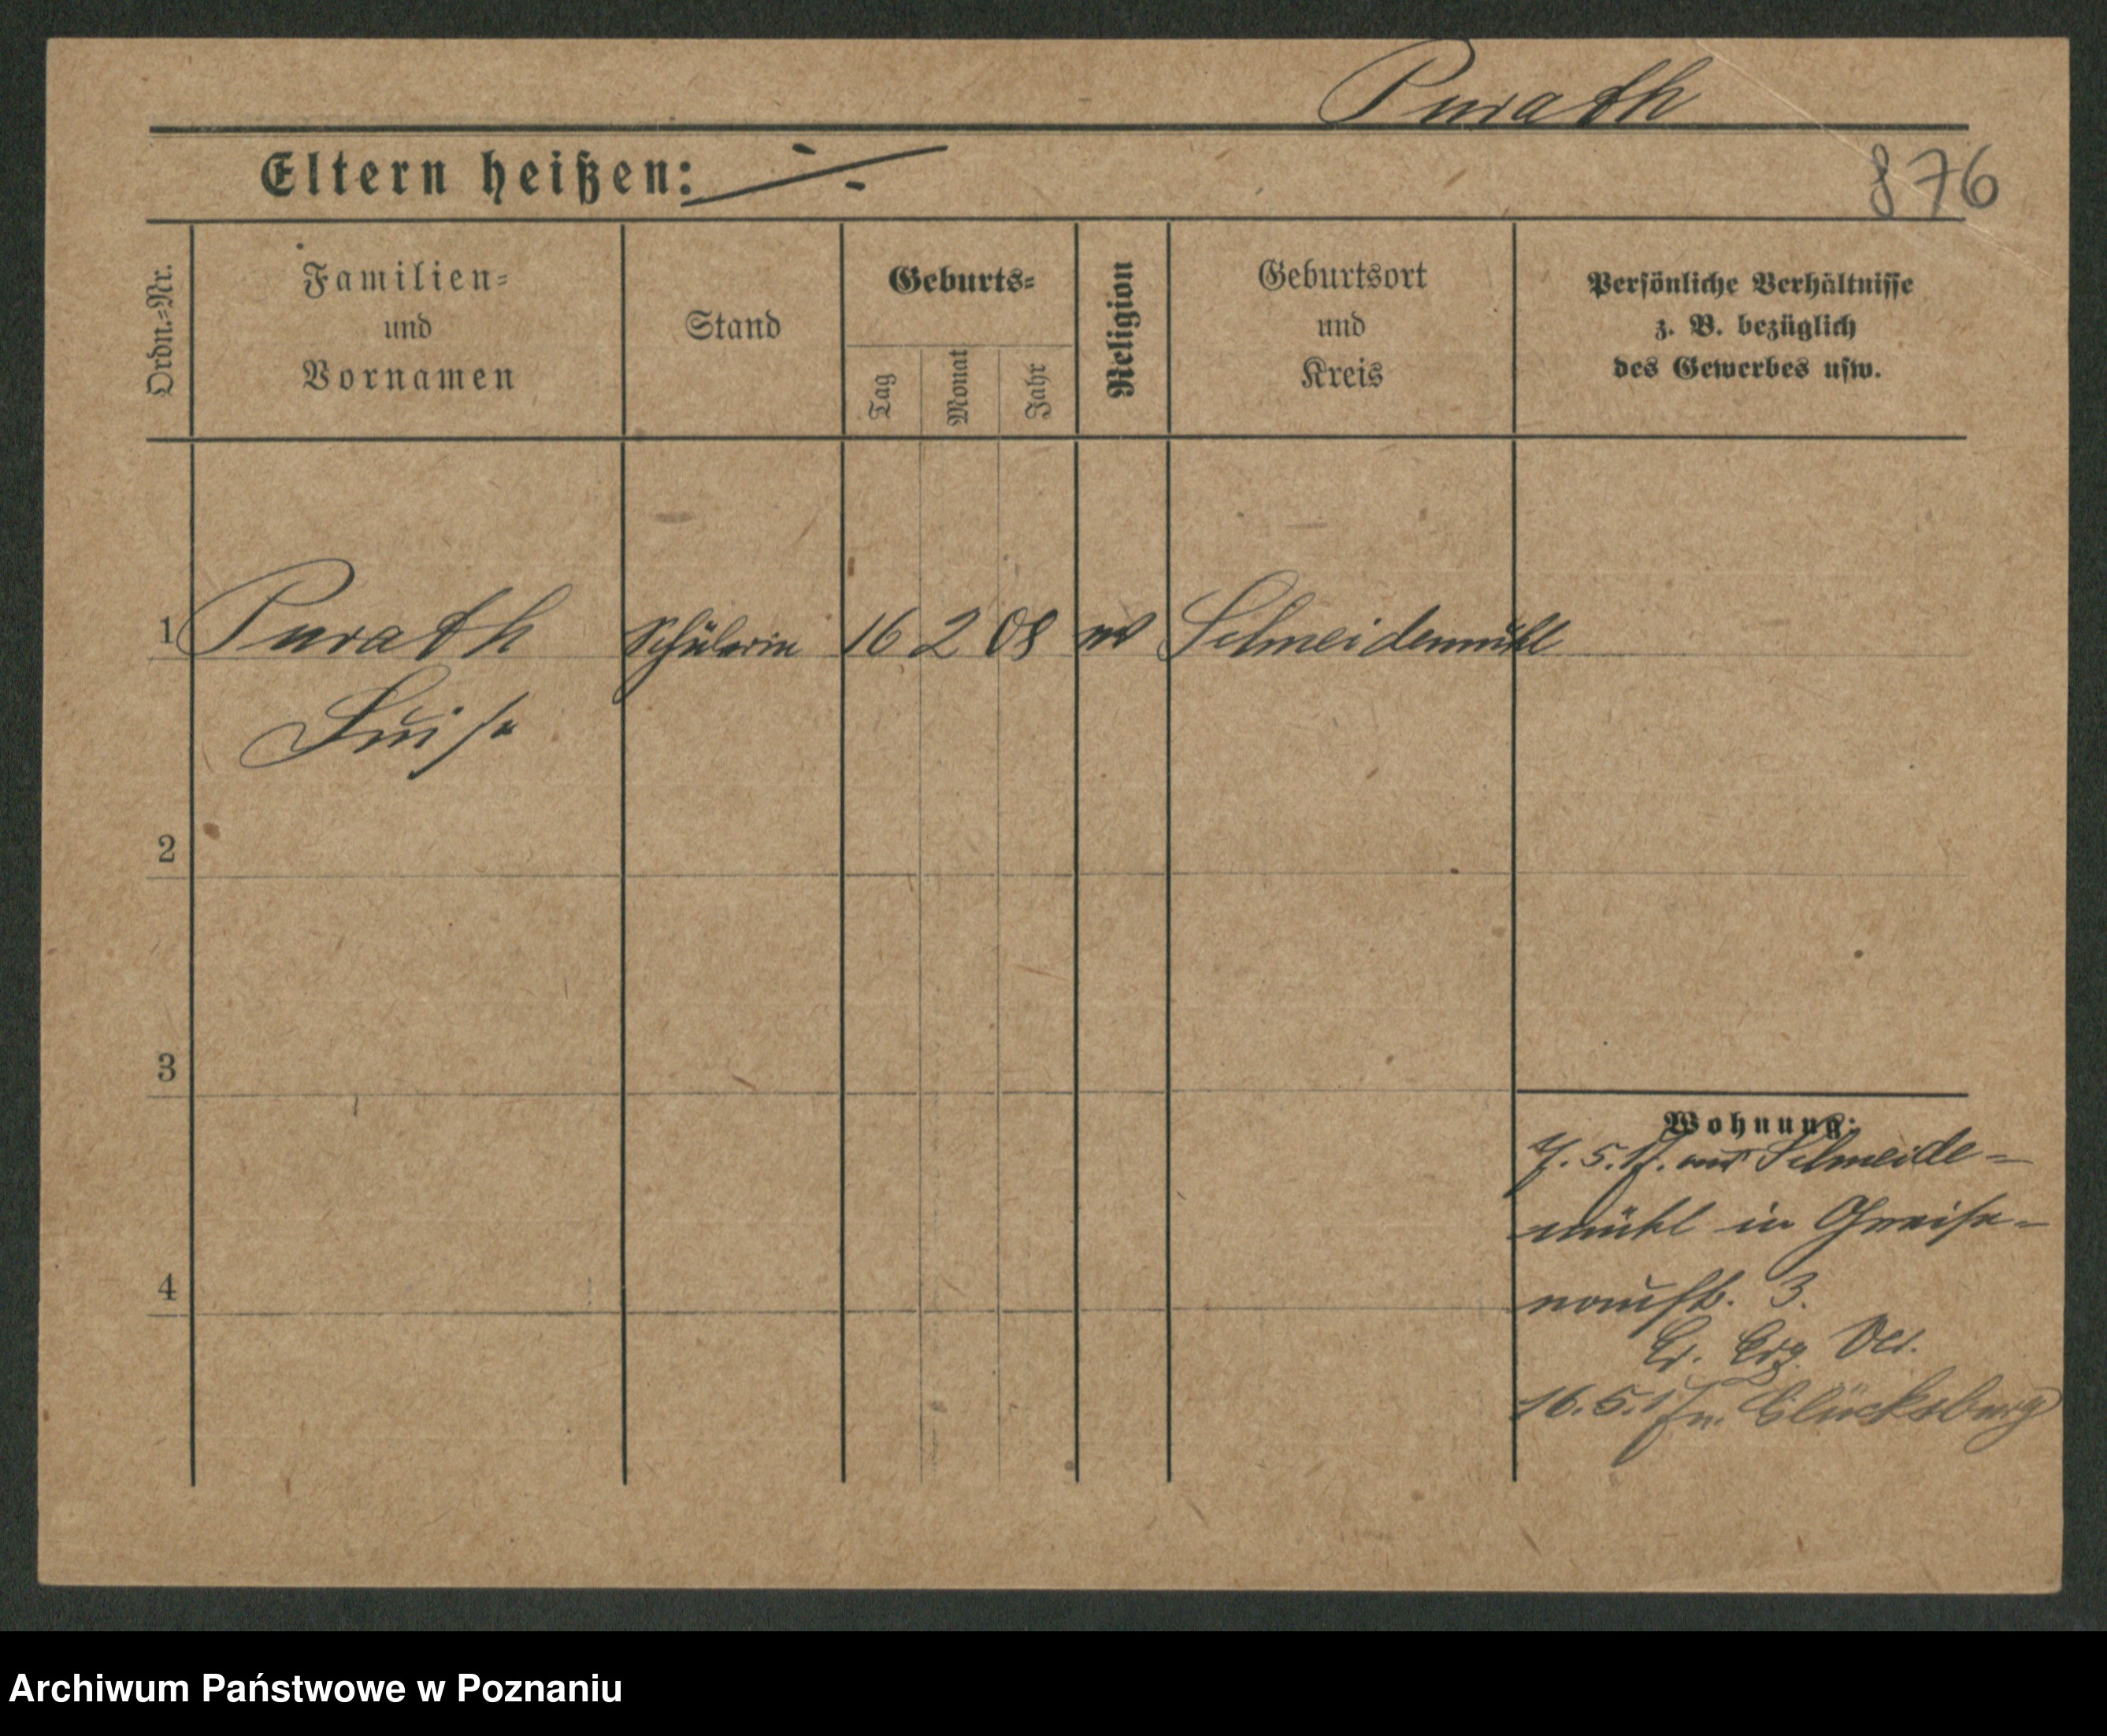 Purath
Eltern heißen: ÷
876
Ordn.=Nr.
Familien=
und
Vornamen
Stand
Geburts=
Tag
Monat
Jahr
Religion
Geburtsort
und
Kreis
Persönliche Verhältnisse
z. B. bezüglich
des Gewerbes usw.
1 Purath Schülerin 16 2 08 Schneidemühl
Luise
2
3
4
Wohnung:
7. 5. 17. Schneide=
mühl in Gneise=
naustr. 3.
16. 5. 17 n. Glücksburg
Archiwum Państwowe w Poznaniu